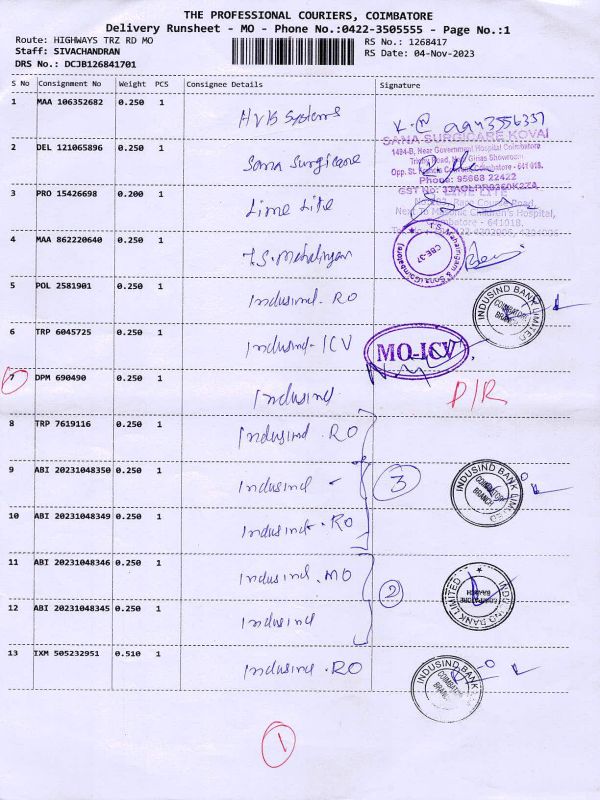 THE PROFESSIONAL COURIERS, COIMBATORE
Delivery Runsheet - MO - Phone No.:0422-3505555 - Page No.:1
Route: HIGHWAYS TRZ RD MO
RS No.: 1268417
Staff: SIVACHANDRAN
RS Date: 04-Nov-2023
DRS No.: DCJB126841701
S No Consignment No Weight PCS Consignee Details Signature
1 MAA 106352682 0.250 1 HVB Systems
SANA SURGICARE KOVAI
1494-B, Near Government Hospital Coimbatore
2 DEL 121065896 0.250 1 Sana Surgicare
Phone: 95668 22422
3 PRO 15426698 0.200 1 Lime Lite
LIME LITE
4 MAA 862220640 0.250 1 T.S. Mahalingam
T.S. Mahalingam & Sons (Coimbatore)
CBE-37
5 POL 2581901 0.250 1 Indusind. RO
INDUSIND BANK LIMITED
COIMBATORE BRANCH
6 TRP 6045725 0.250 1 Indusind-ICV
MO-ICV
7 DPM 690490 0.250 1 Indusind
P/R
8 TRP 7619116 0.250 1 Indusind. RO
9 ABI 20231048350 0.250 1 Indusind -
3
INDUSIND BANK LIMITED
COIMBATORE BRANCH
10 ABI 20231048349 0.250 1 Indusind. RO
11 ABI 20231048346 0.250 1 Indusind. MO
2
INDUSIND BANK LIMITED
COIMBATORE BRANCH
12 ABI 20231048345 0.250 1 Indusind
13 IXM 505232951 0.510 1 Indusind. RO
INDUSIND BANK LIMITED
COIMBATORE BRANCH
1